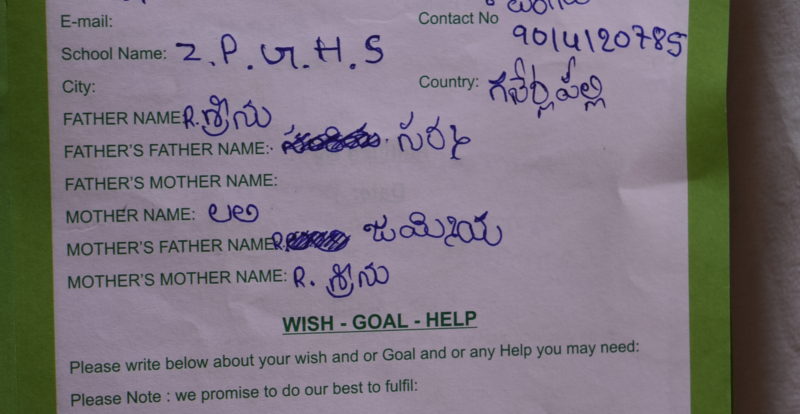 E-mail:
Contact No
9014120785
School Name: Z.P.U.H.S
City:
Country: గవేర్లపల్లి
FATHER NAME: R.శ్రీను
FATHER'S FATHER NAME:
FATHER'S MOTHER NAME:
MOTHER NAME: లలి
MOTHER'S FATHER NAME: R.
MOTHER'S MOTHER NAME: R. శ్రీను
WISH - GOAL - HELP
Please write below about your wish and or Goal and or any Help you may need:
Please Note : we promise to do our best to fulfil: